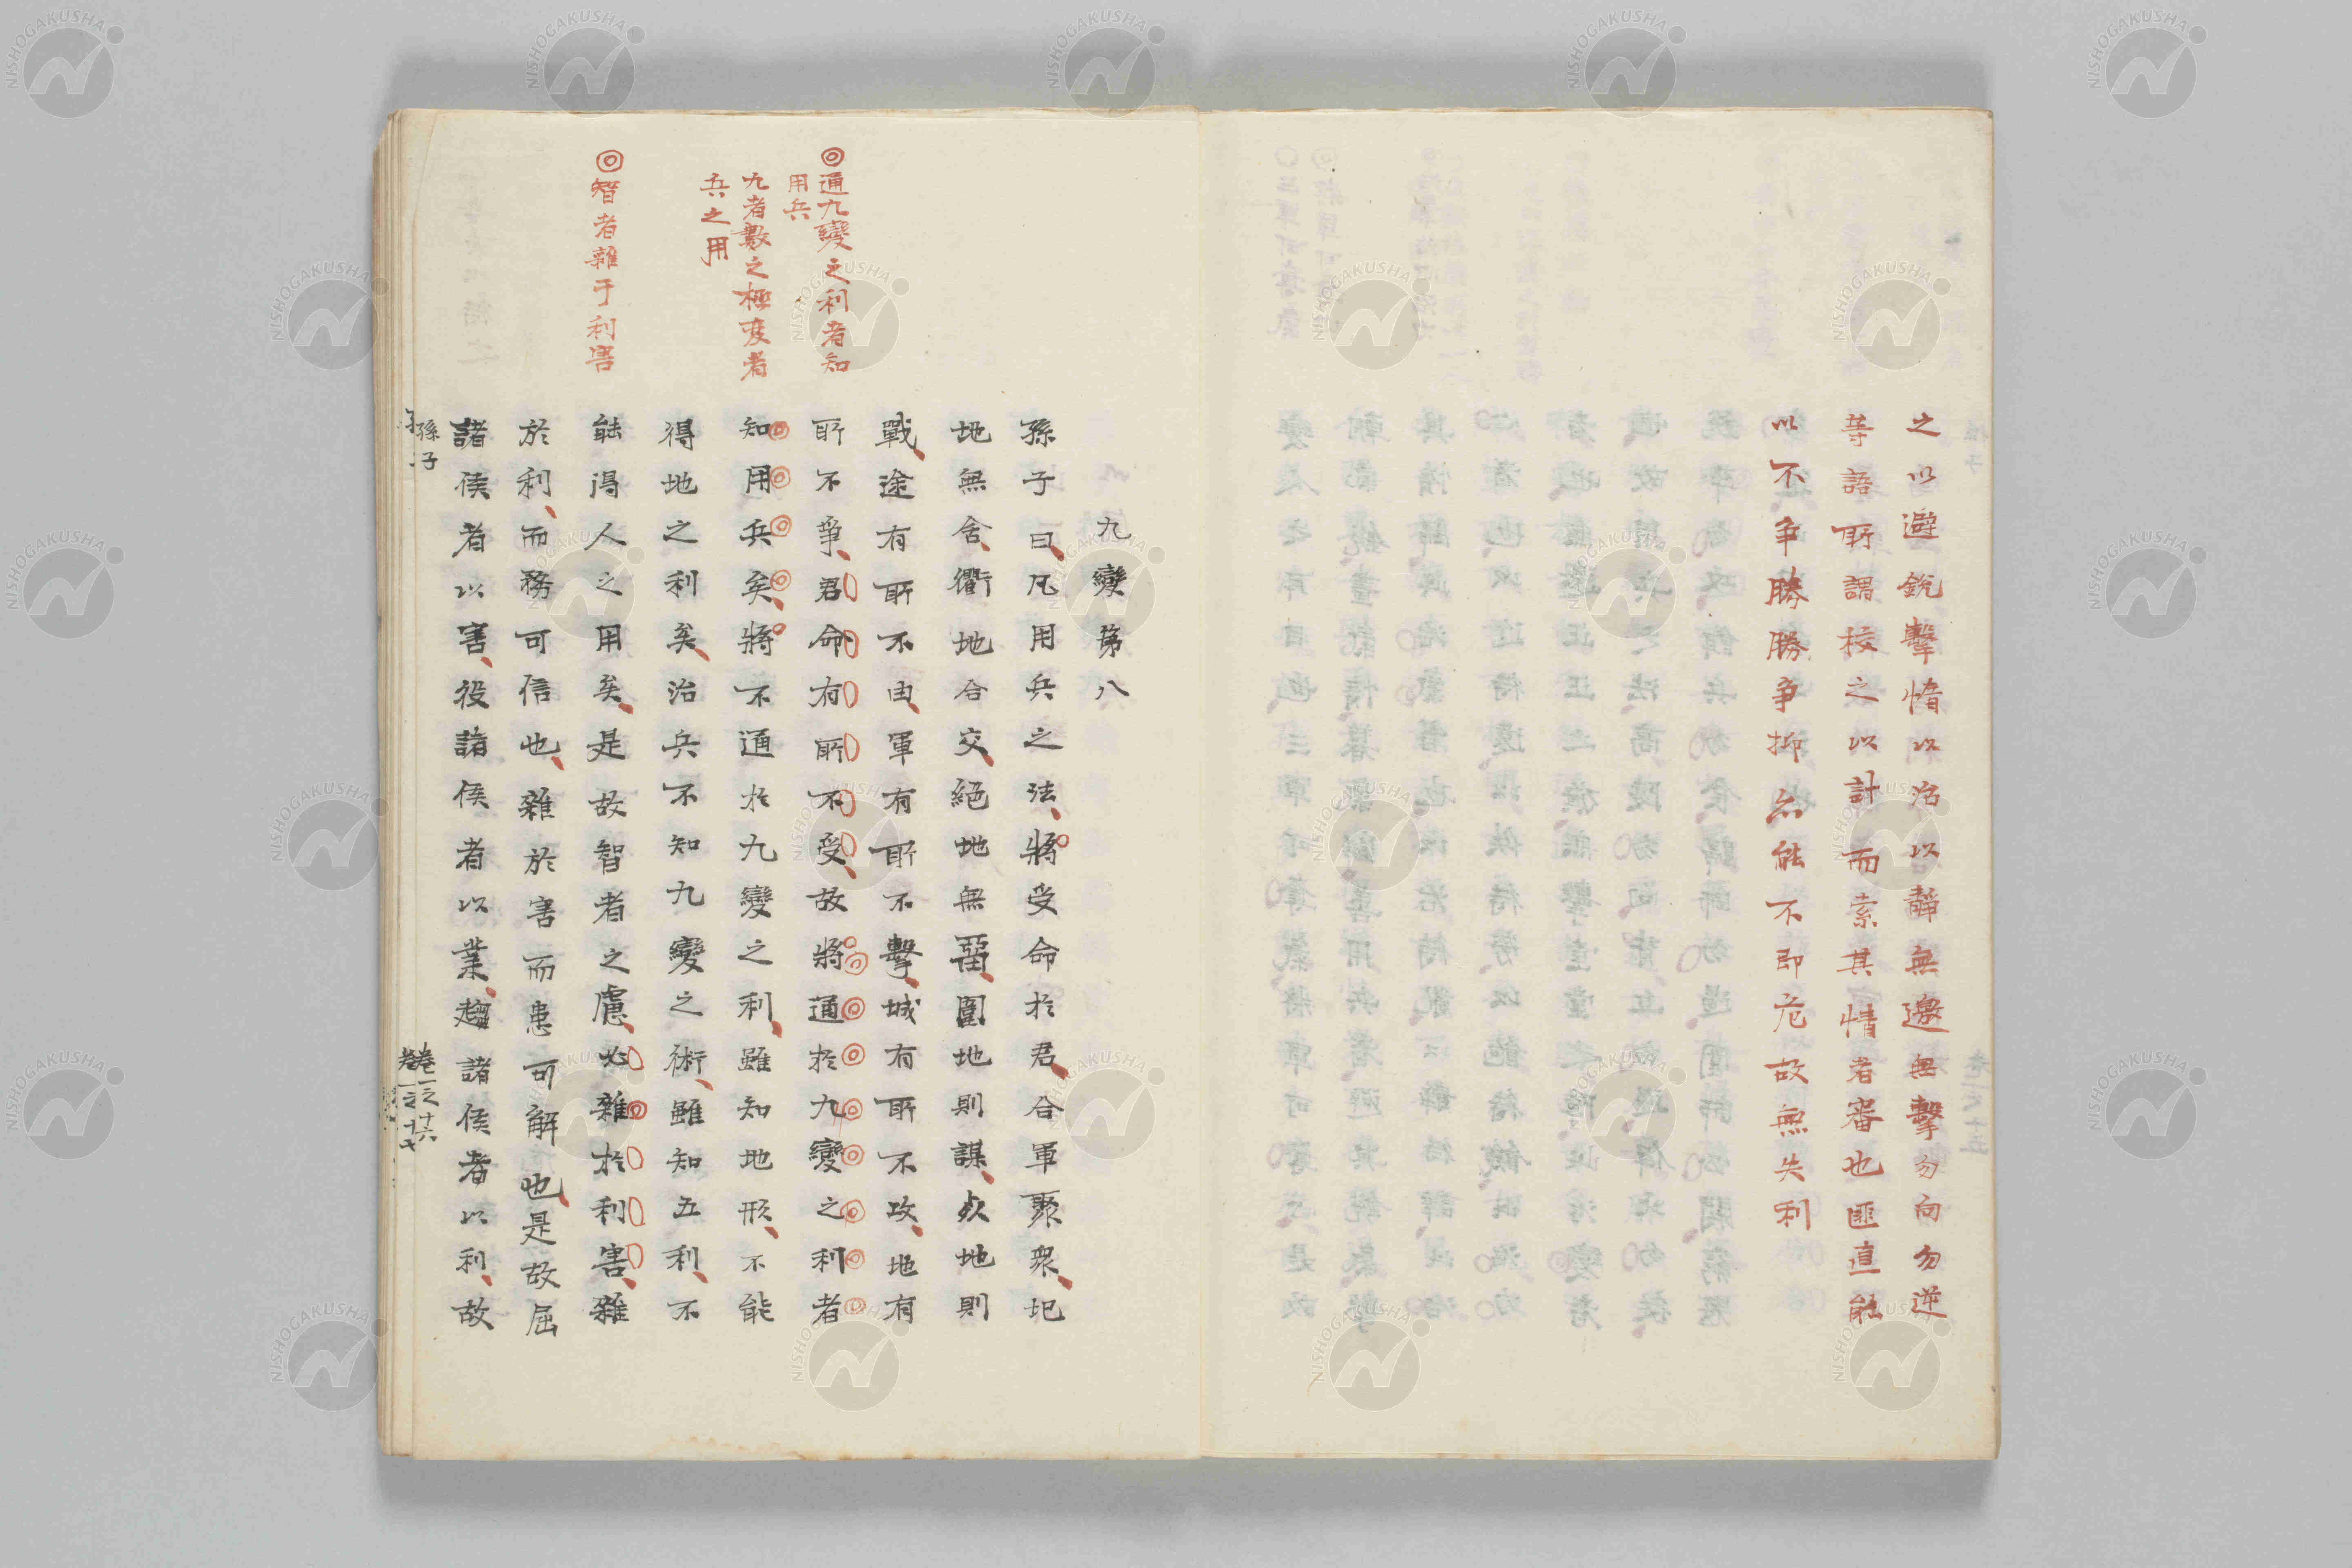 之以避銳擊惰以治以靜無邀無擊勿向勿逆
等語所謂校之以計而索其情者審也匪直能
以不爭勝勝爭抑亦能不即危故無失利
◎通九變之利者知
用兵
九者數之極変者
兵之用
◎智者雜于利害
九變第八
孫子曰凡用兵之法將受命於君合軍聚衆圮
地無舍衢地合交絕地無畱圍地則謀死地則
戰途有所不由軍有所不擊城有所不攻地有
所不爭君命有所不受故將通於九變之利者
知用兵矣將不通於九變之利雖知地形不能
得地之利矣治兵不知九變之術雖知五利不
能得人之用矣是故智者之慮必雜於利害雜
於利而務可信也雜於害而患可解也是故屈
諸侯者以害役諸侯者以業趨諸侯者以利故
孫子
卷一之十六
NISHOGAKUSHA